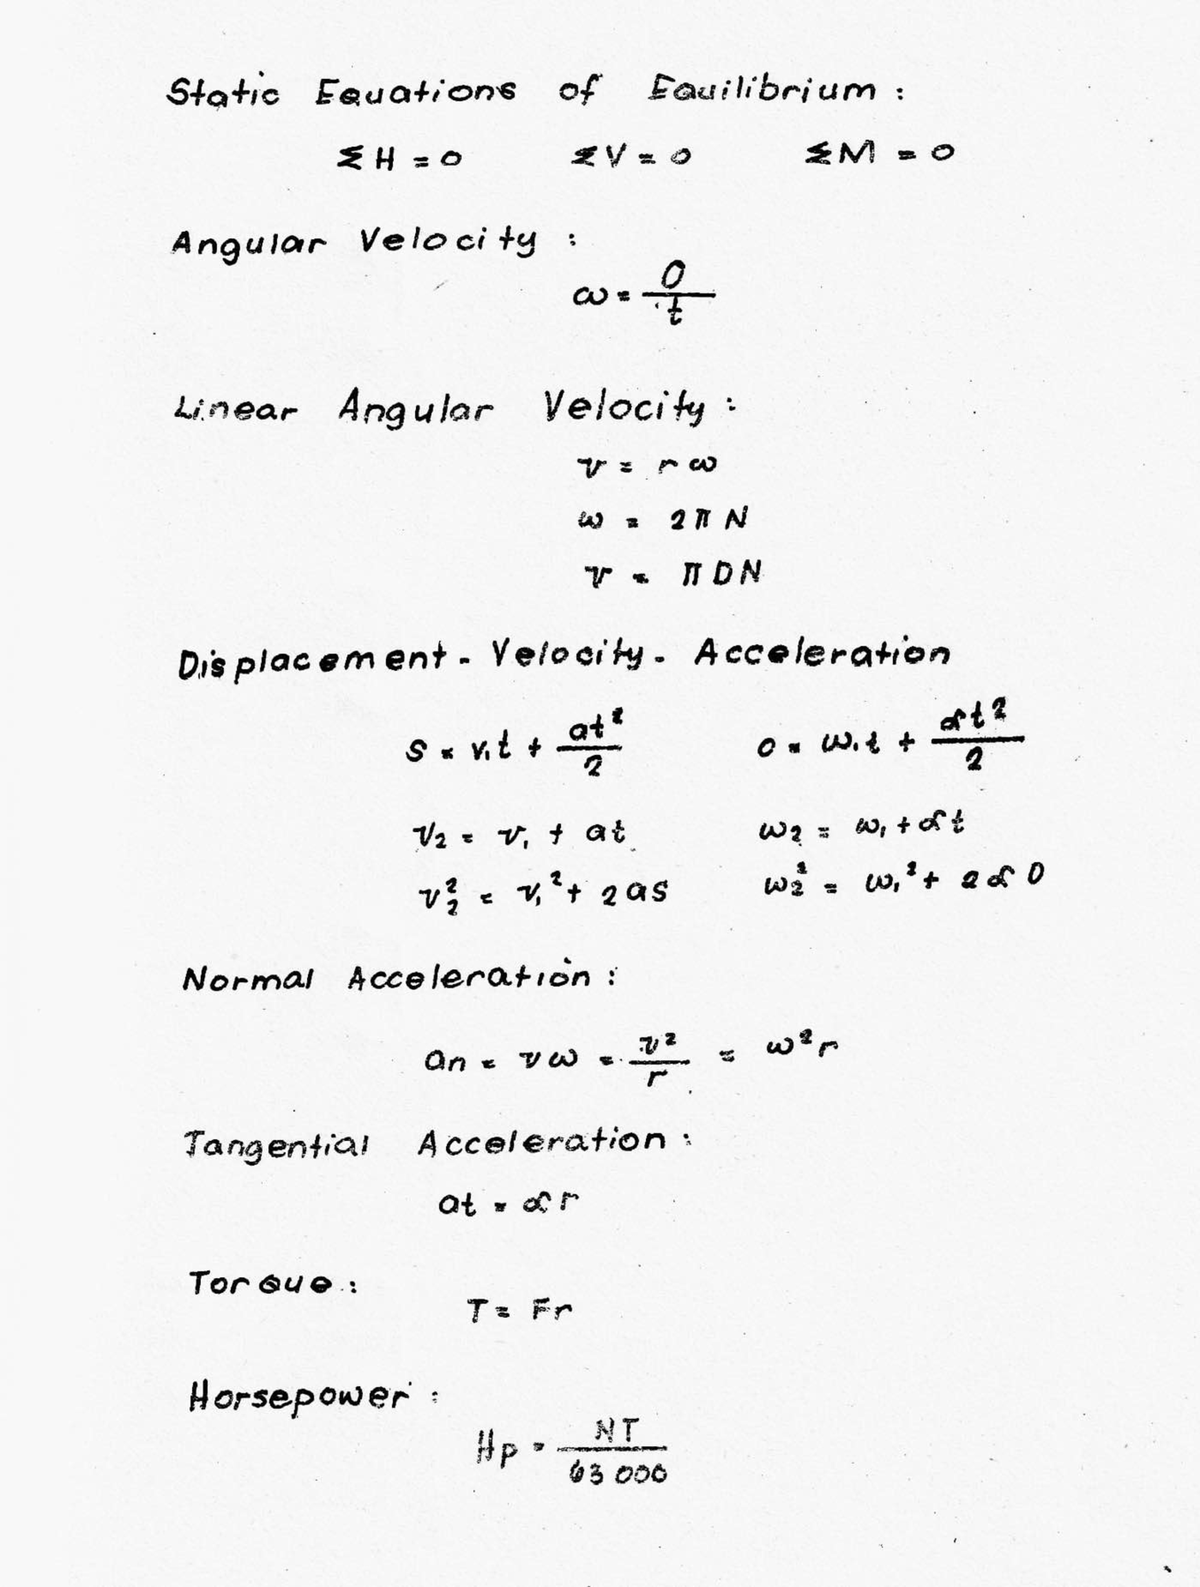 Static Equations of Equilibrium :
ΣH = 0 ΣV = 0 ΣM = 0
Angular Velocity :
ω = 0/t
Linear Angular Velocity :
v = rω
ω = 2πN
v = πDN
Displacement - Velocity - Acceleration
S = v₁t + at²/2 0 = ω₁t + αt²/2
v₂ = v₁ + at ω₂ = ω₁ + αt
v₂² = v₁² + 2as ω₂² = ω₁² + 2α0
Normal Acceleration :
an = vω = v²/r = ω²r
Tangential Acceleration :
at = αr
Torque :
T = Fr
Horsepower :
Hp = NT/63 000